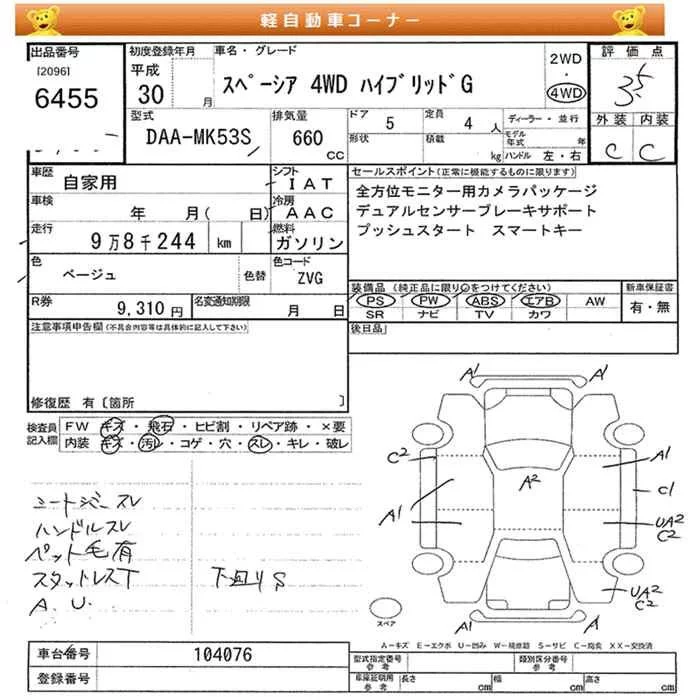 軽自動車コーナー
出品番号
[2096]
6455
初度登録年月
平成
30
月
車名・グレード
スペーシア 4WD ハイブリッドG
2WD
・
4WD
評価点
3.5
型式
DAA-MK53S
排気量
660
CC
ドア
5
定員
4
人
形状
積載
kg
ディーラー・並行
モデル年式
年
ハンドル 左・右
外装
内装
C
C
車歴
自家用
シフト
IAT
車検
年 月( 日)
冷房
AAC
走行
9万8千244 km
燃料
ガソリン
色
ベージュ
色替
色コード
ZVG
R券
9,310円
名変通知期限
月 日
セールスポイント(正常に機能するものに限ります)
全方位モニター用カメラパッケージ
デュアルセンサーブレーキサポート
プッシュスタート スマートキー
装備品(純正品に限り○をつけてください)
新車保証書
PS
PW
ABS
エアB
AW
SR
ナビ
TV
カワ
有・無
注意事項申告欄(不具合内容等は具体的に記入して下さい)
後日品
修復歴 有〔箇所 〕
検査員記入欄
FW キズ・飛石・ヒビ割・リペア跡・×要
内装 キズ・汚レ・コゲ・穴・スレ・キレ・破レ
シートシワ スレ
ハンドルスレ
ペット毛有
スタットレスT
下廻りS
A.U.
A1
A1
C2
A1
A2
C1
A1
UA2
C2
UA2
C2
A1
A
スペア
A-キズ E-エクボ U-凹み W-補修跡 S-サビ C-腐食 XX-交換済
車台番号
104076
登録番号
型式指定番号
参考
類別区分番号
参考
車庫証明用
参考
長さ
cm
幅
cm
高さ
cm